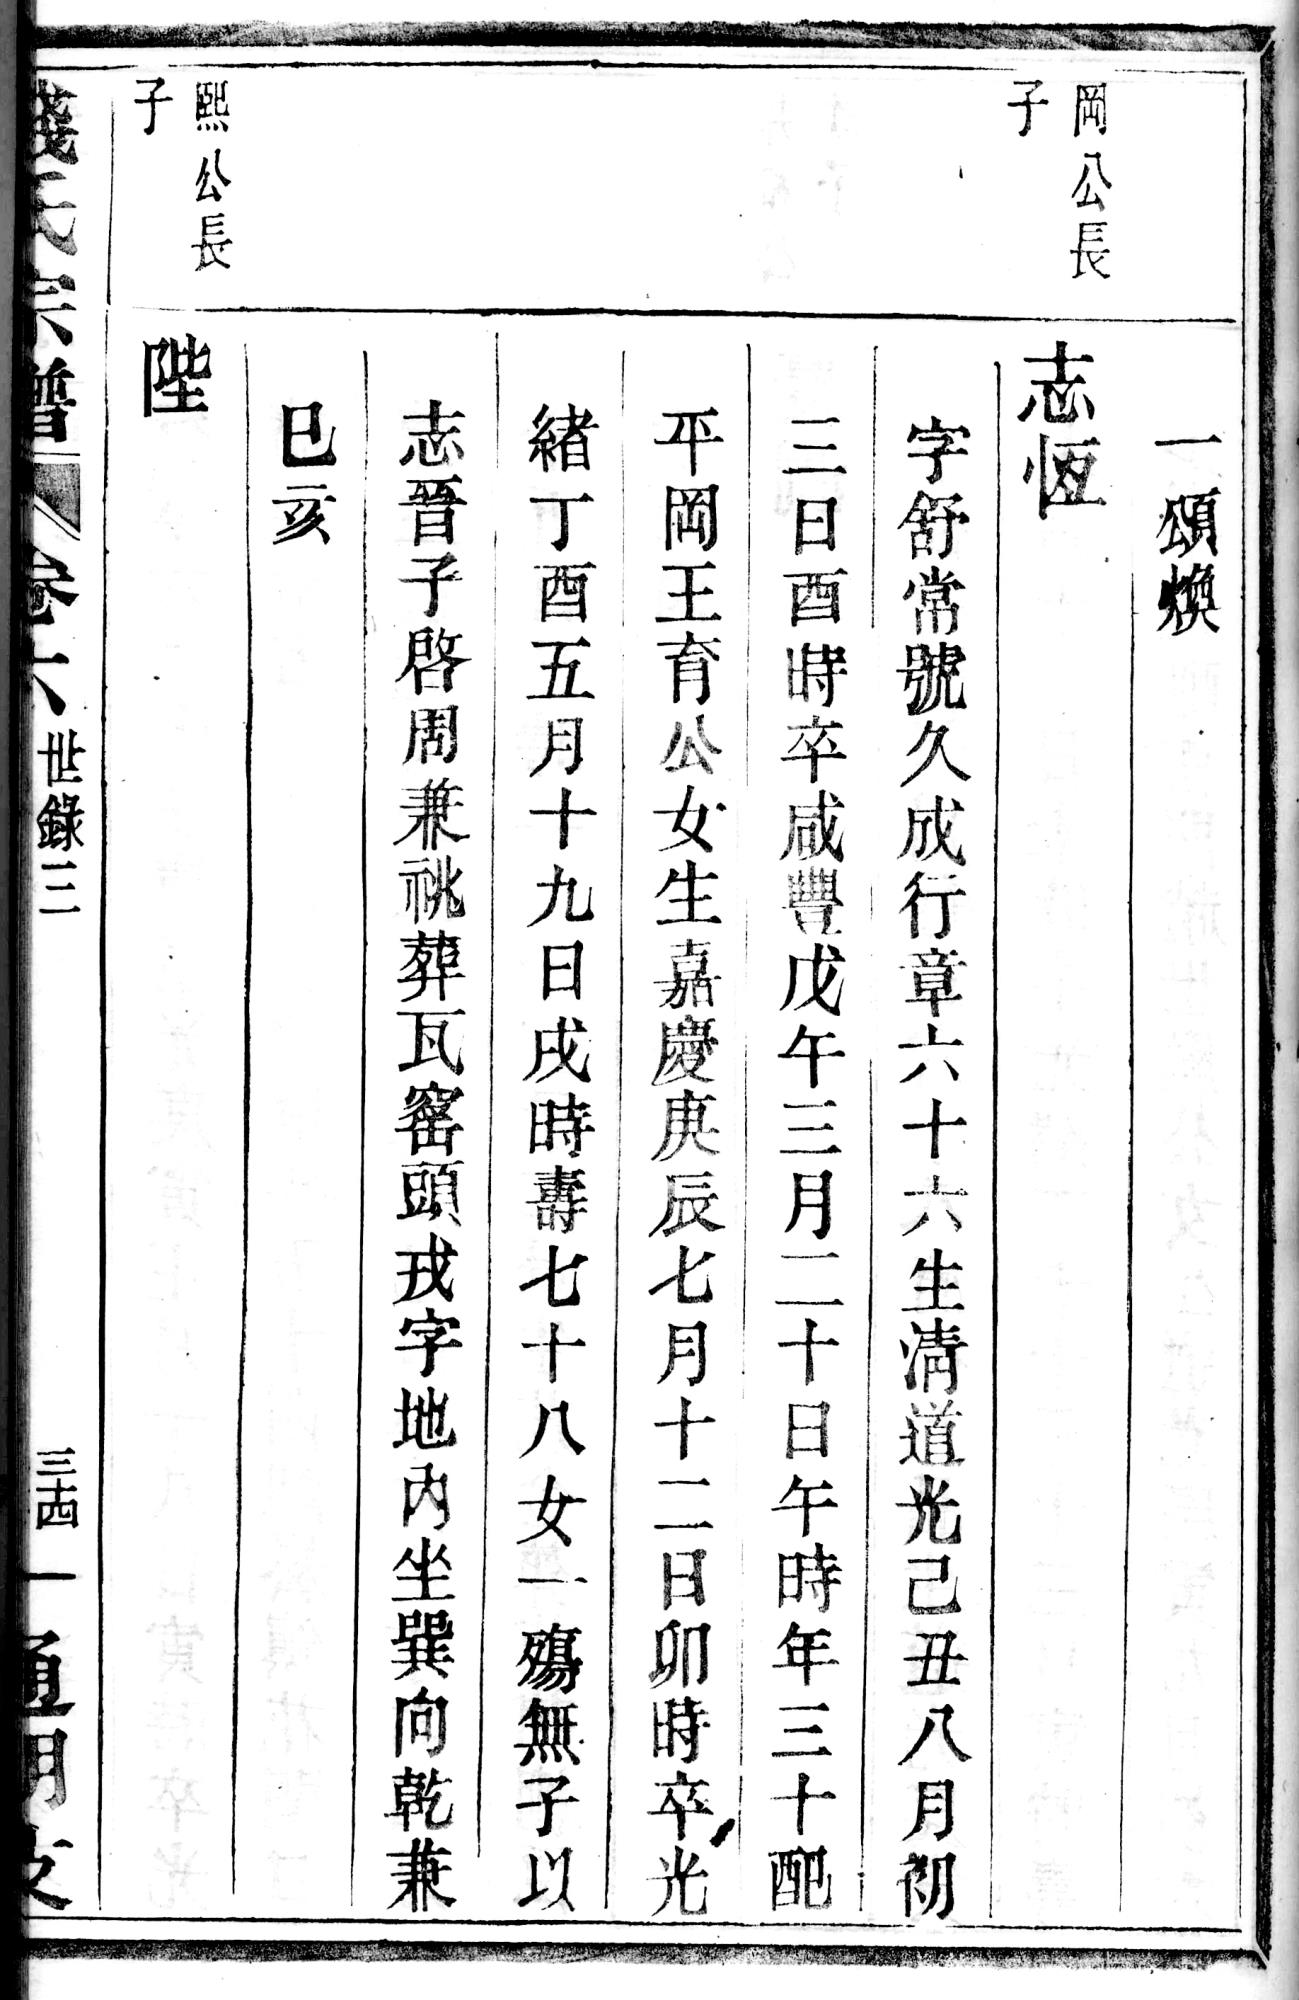 一頌煥
岡公長
子
志恆
字舒常號久成行章六十六生淸道光己丑八月初
三日酉時卒咸豐戊午三月二十日午時年三十配
平岡王育公女生嘉慶庚辰七月十二日卯時卒光
緒丁酉五月十九日戌時壽七十八女一殤無子以
志晉子啓周兼祧葬瓦窰頭戎字地內坐巽向乾兼
巳亥
熙公長
子
陛
錢氏宗譜 卷六 世錄三 三十四 通明支